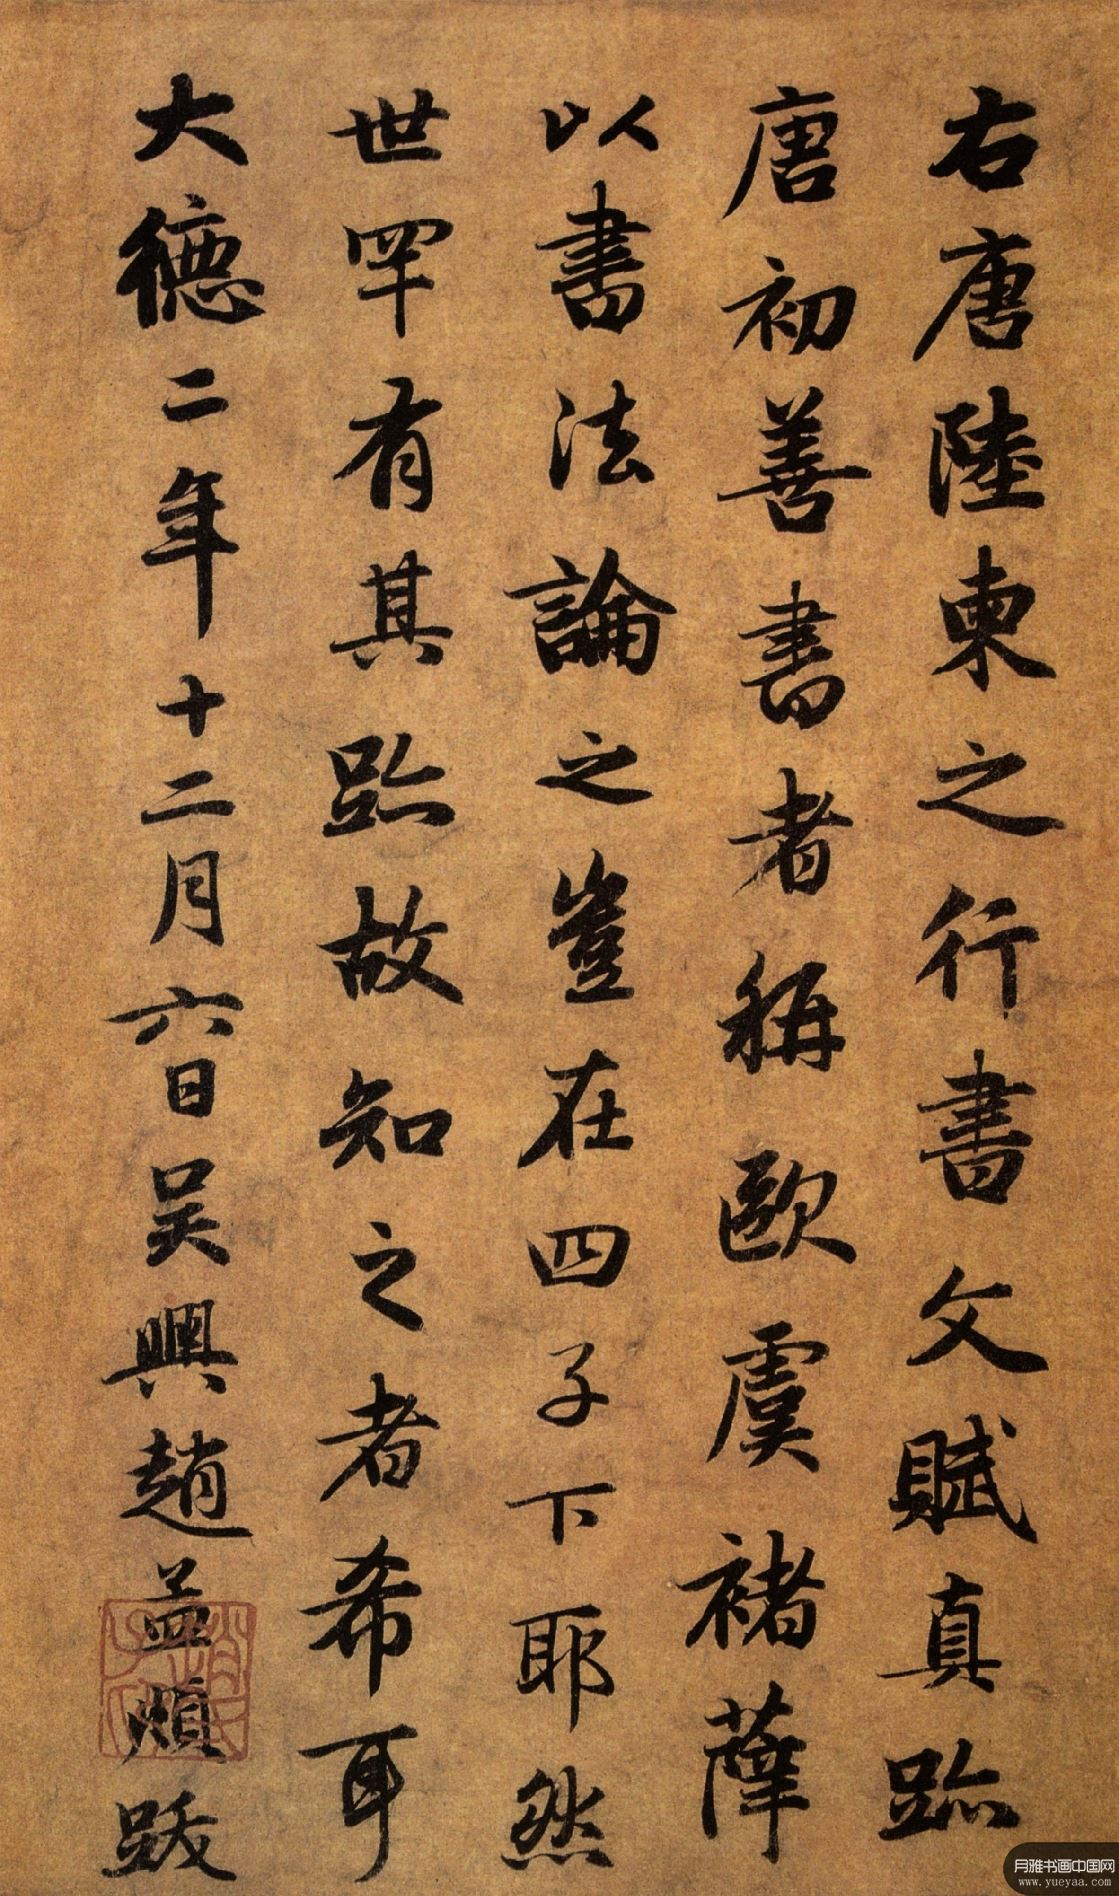 右唐陸柬之行書文賦真跡
唐初善書者稱歐虞褚薛
以書法論之豈在四子下耶然
世罕有其跡故知之者希耳
大德二年十二月六日吴興趙孟頫跋
趙氏子昂
月雅书画中国网
www.yueyaa.com